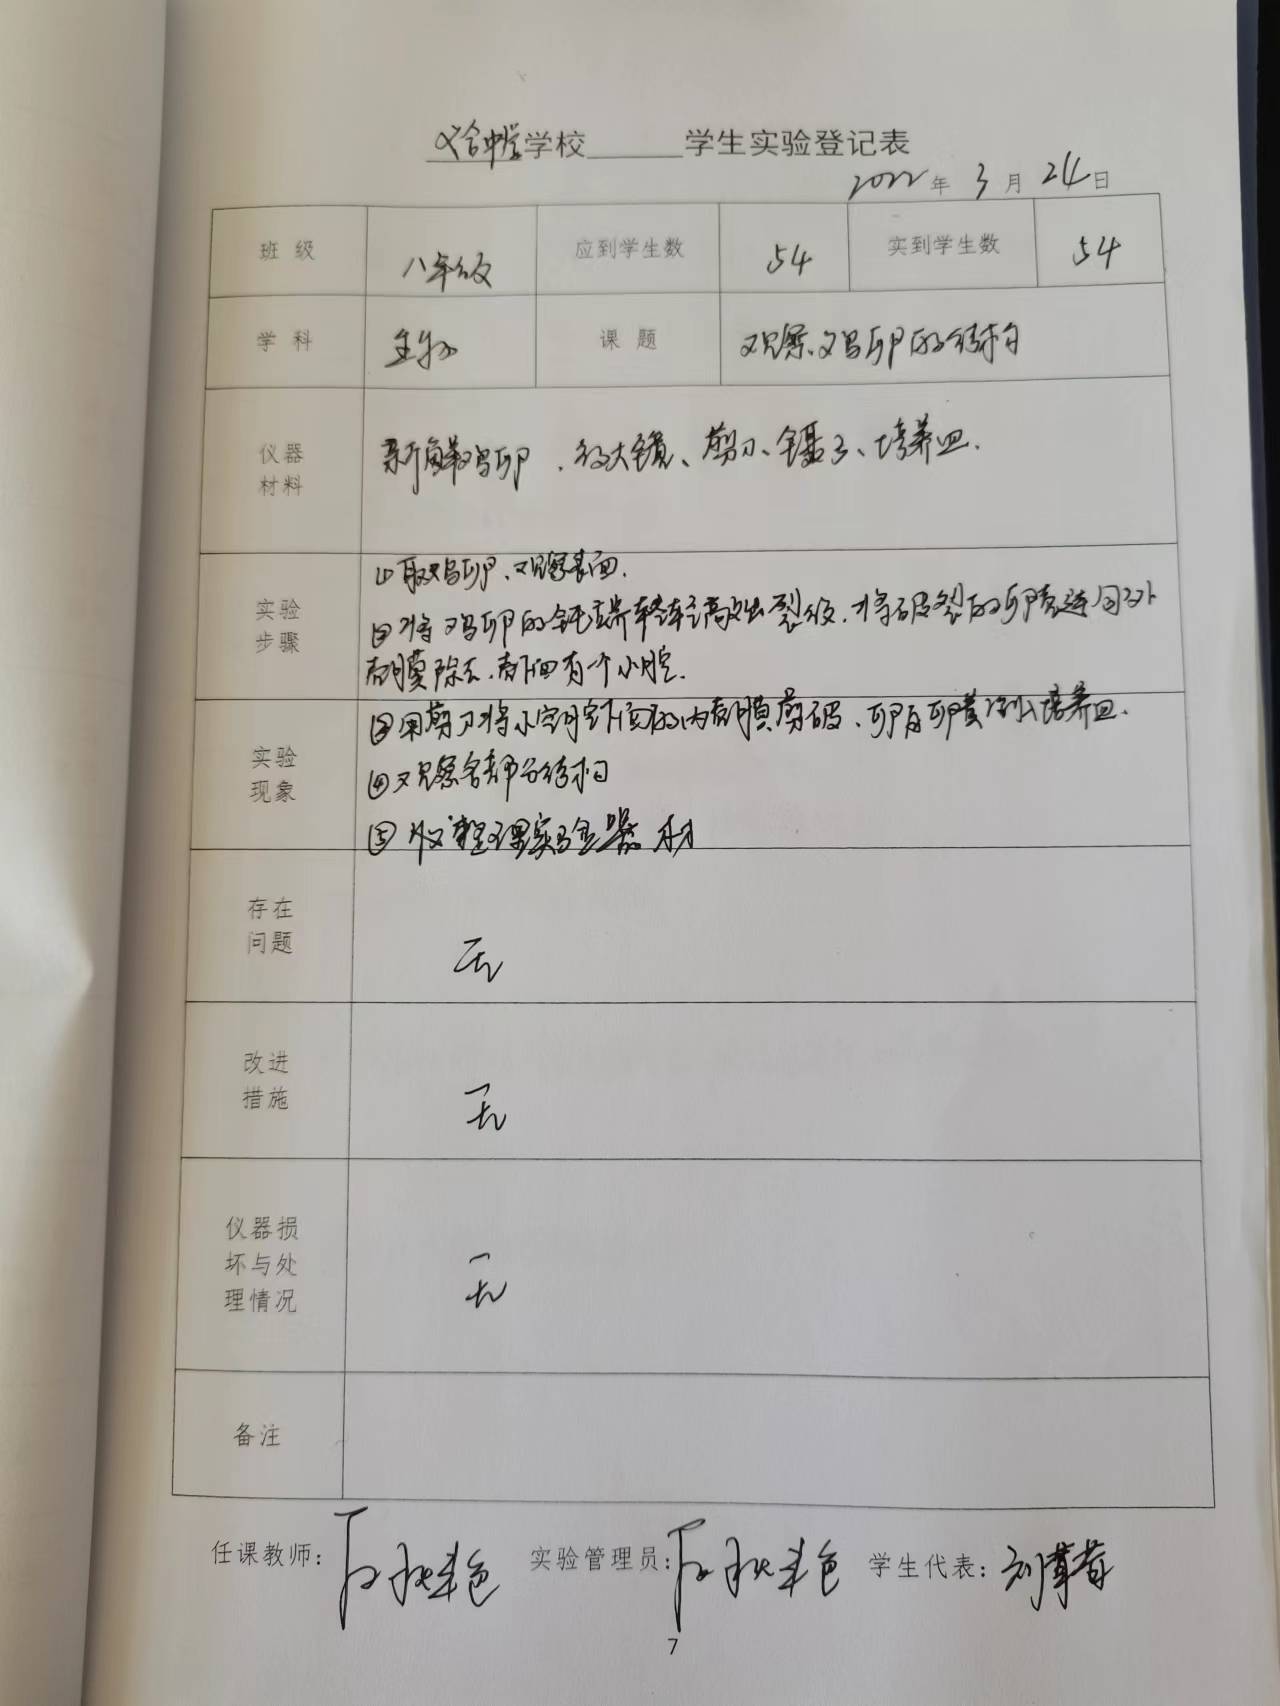 中学学校______学生实验登记表
2022年3月24日
班级 八年级 应到学生数 54 实到学生数 54
学科 生物 课题 观察鸡卵的结构
仪器
材料
新鲜鸡卵、放大镜、剪刀、镊子、培养皿.
实验
步骤
①取鸡卵、观察表面.
②将鸡卵的钝端轻轻敲出裂纹,将破裂的卵壳连同外
壳膜除去,壳下面有一个小腔.
实验
现象
③用剪刀将小室下面的内壳膜剪破、卵白卵黄倒入培养皿.
④观察各部分结构
⑤收整理实验器材
存在
问题
无
改进
措施
无
仪器损
坏与处
理情况
无
备注
任课教师: 实验管理员: 学生代表:
7